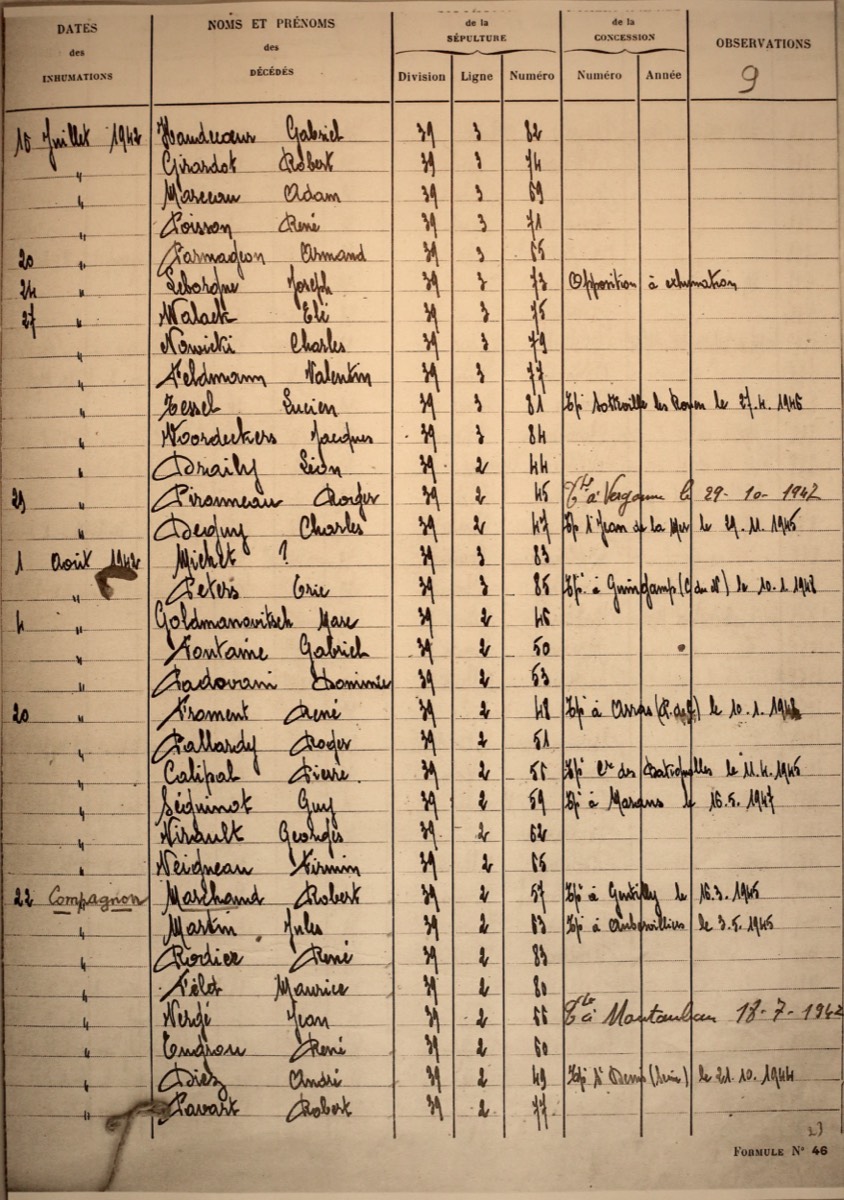 DATES des INHUMATIONS
NOMS ET PRÉNOMS des DÉCÉDÉS
de la SÉPULTURE
de la CONCESSION
OBSERVATIONS
Division Ligne Numéro Numéro Année
9
Juillet 1942 Gabriel 39 3 82
" Girardot Robert 39 3 74
" Marceau Adam 39 3 69
" Poisson René 39 3 71
20 " Parmageon Armand 39 3 65
24 " Leborgne Joseph 39 3 73 Opposition à exhumation
27 " Walack Elé 39 3 75
" Nowicki Charles 39 3 79
" Feldmann Valentin 39 3 77
" Tessel Lucien 39 3 81 Tpé Sotteville les Rouen le 27.4.1946
" Noordeckers Jacques 39 3 84
" Draily Léon 39 2 44
29 " Pironneau Roger 39 2 45 à le 29-10-1947
" Deguy Charles 39 2 47 Tpé St Jean de la Mer le 29.11.1945
1 Août 1942 Michet ? 39 3 83
" Peters Eric 39 3 85 Tpé à Guingamp (C du N) le 10.1.1948
4 " Goldmanovitsch Marc 39 2 46
" Fontaine Gabriel 39 2 50
" Padovani Dominic 39 2 53
20 " Froment René 39 2 48 Tpé à Arras (P. de C) le 10.1.1948
" Pallardy Roger 39 2 51
" Calipal Pierre. 39 2 55 Tpé Cre des Batignolles le 11.4.1945
" Séguinot Guy 39 2 59 Tpé à Marans le 16.5.1947
" Nirault Georges 39 2 62
" Neigneau Firmin 39 2 65
22 Compagnon Marchand Robert 39 2 57 Tpé à Gentilly le 16.3.1945
" Martin Jules 39 2 63 Tpé à Aubervilliers le 3.5.1945
" Rodier René 39 2 83
" Félot Maurice 39 2 80
" Vergé Jean 39 2 à Montauban 18-7-1947
" René 39 2 60
" Diez André 39 2 49 Tpé St Denis (Seine) le 21.10.1944
" Pavart Robert 39 2 77
23
FORMULE N° 46